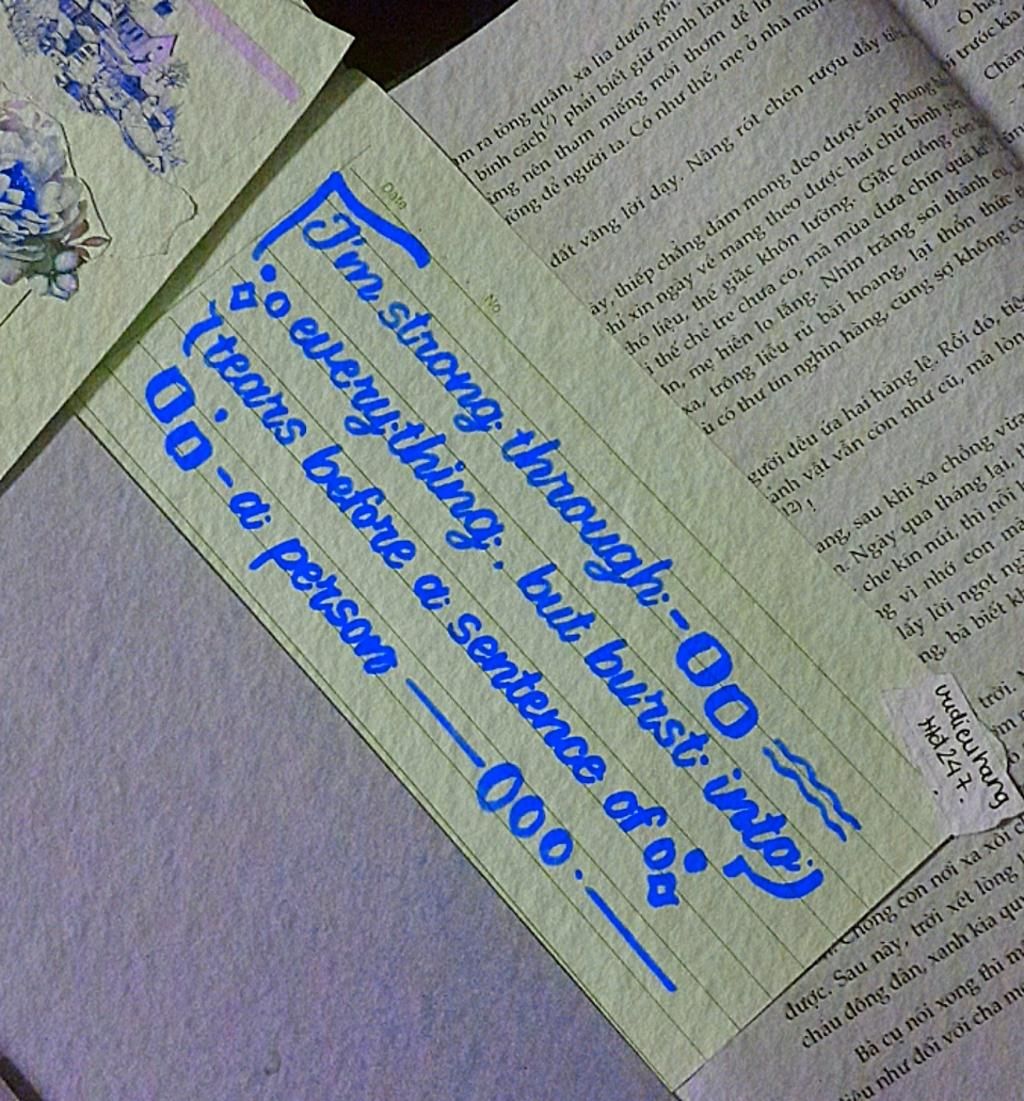 Date
No.
I'm strong through -
everything, but burst into
tears before a sentence of
- a person
vudieuhang
Hd247.
m ra tòng quân, xa lìa dưới gối.
bình cách(7) phải biết giữ mình làm
đừng để người ta. Có như thế, mẹ ở nhà mới
đất vâng lời dạy. Nàng rót chén rượu đầy tiễn
ày, thiếp chẳng dám mong đeo được ấn phong
chỉ xin ngày về mang theo được hai chữ bình yên
khó liệu, thế giặc khôn lường. Giặc cuồng còn
i thế chẻ tre chưa có, mà mùa dưa chín quá kì
ìn, mẹ hiền lo lắng. Nhìn trăng soi thành cũ
xa, trông liễu rủ bãi hoang, lại thổn thức
ù có thư tín nghìn hàng, cũng sợ không có
gười đều ứa hai hàng lệ. Rồi đó, tiệ
ảnh vật vẫn còn như cũ, mà lòn
(12) !
ang, sau khi xa chồng vừa
n. Ngày qua tháng lại, t
che kín núi, thì nỗi
ng vì nhớ con mà
lấy lời ngọt ng
ng, bà biết kh
trời.
Chồng con nơi xa xôi c
được. Sau này, trời xét lòng l
cháu đông đàn, xanh kia quy
Bà cụ nói xong thì m
liệu như đối với cha m
trước kia
Chàng